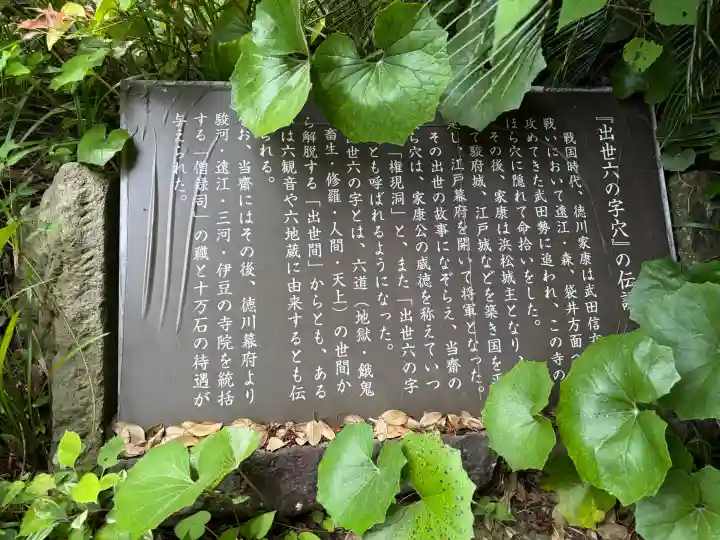 『出世六の字穴』の伝
戦国時代、徳川家康は武田信
戦いにおいて遠江・森、袋井方面
攻めてきた武田勢に追われ、この寺の
ほら穴に隠れて命拾いをした。
その後、家康は浜松城主となり、
て駿府城、江戸城などを築き国を平
江戸幕府を開いて将軍となった。
その出世の故事になぞらえ、当齋の
ら穴は、家康公の威徳を称えていつ
「権現洞」と、また「出世六の字
とも呼ばれるようになった。
世六の字とは、六道（地獄・餓鬼
畜生・修羅・人間・天上）の世間か
ら解脱する「出世間」からとも、ある
は六観音や六地蔵に由来するとも伝
られる。
お、当齋にはその後、徳川幕府より
駿河、遠江・三河・伊豆の寺院を統括
する「僧録司」の職と十万石の待遇が
与えられた。